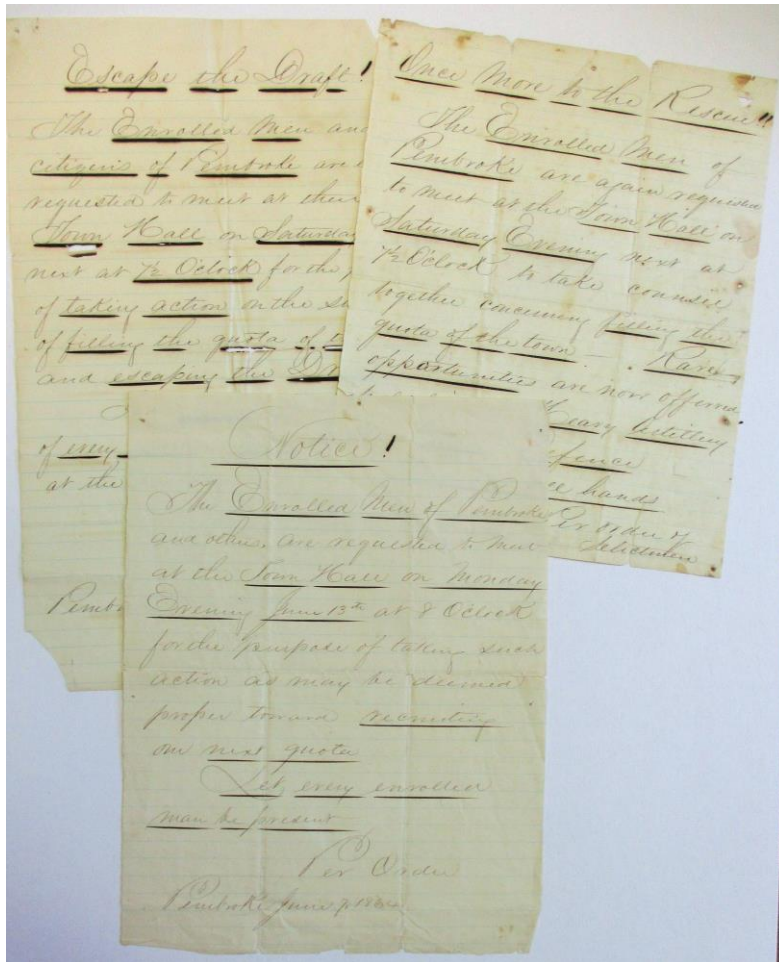 Escape the Draft!
The Enrolled Men and
citizens of Pembroke are
requested to meet at their
Town Hall on Saturday
next at 7½ O'Clock for the
of taking action on the
of filling the quota of
and escaping the
of every
at the
Once More to the Rescue!!
The Enrolled Men of
Pembroke are again requested
to meet at the Town Hall on
Saturday Evening next at
7½ O'Clock to take counsel
together concerning filling the
quota of the town. Rare
opportunities are now offered
Heavy Artillery
hands
Per order of
Selectmen
Notice!
The Enrolled Men of Pembroke
and others are requested to meet
at the Town Hall on Monday
Evening June 13th at 8 O'Clock
for the purpose of taking such
action as may be deemed
proper toward recruiting
our next quota
Let every enrolled
man be present
Per Order
Pembroke June 7